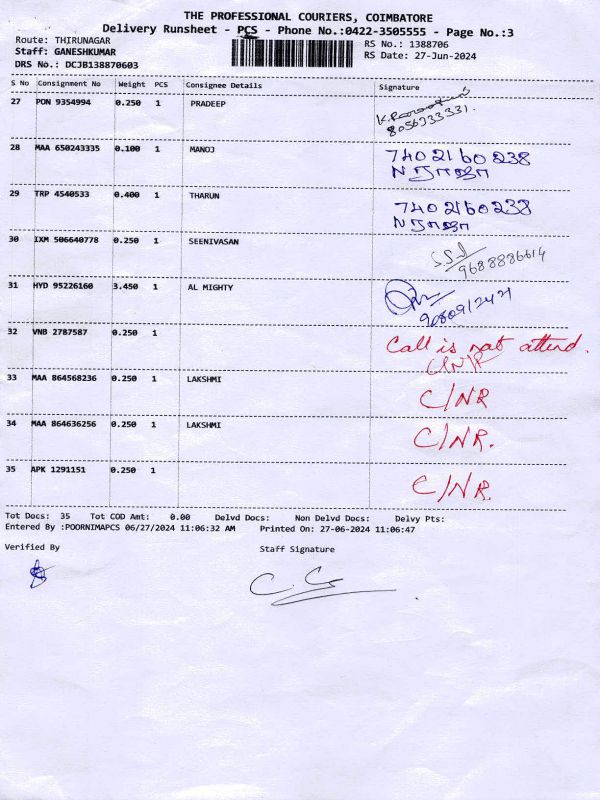 THE PROFESSIONAL COURIERS, COIMBATORE
Delivery Runsheet - PCS - Phone No.:0422-3505555 - Page No.:3
Route: THIRUNAGAR RS No.: 1388706
Staff: GANESHKUMAR RS Date: 27-Jun-2024
DRS No.: DCJB138870603
S No Consignment No Weight PCS Consignee Details Signature
27 PON 9354994 0.250 1 PRADEEP
8056333331.
28 MAA 650243335 0.100 1 MANOJ 740 2160 238
நடராஜா
29 TRP 4540533 0.400 1 THARUN 740 2160238
நடராஜா
30 IXM 506640778 0.250 1 SEENIVASAN
9688886614
31 HYD 95226160 3.450 1 AL MIGHTY
9080912421
32 VNB 2787587 0.250 1 Call is not attend.
C/N/R
33 MAA 864568236 0.250 1 LAKSHMI C/NR
34 MAA 864636256 0.250 1 LAKSHMI C/NR.
35 APK 1291151 0.250 1 C/NR.
Tot Docs: 35 Tot COD Amt: 0.00 Delvd Docs: Non Delvd Docs: Delvy Pts:
Entered By :POORNIMAPCS 06/27/2024 11:06:32 AM Printed On: 27-06-2024 11:06:47
Verified By Staff Signature